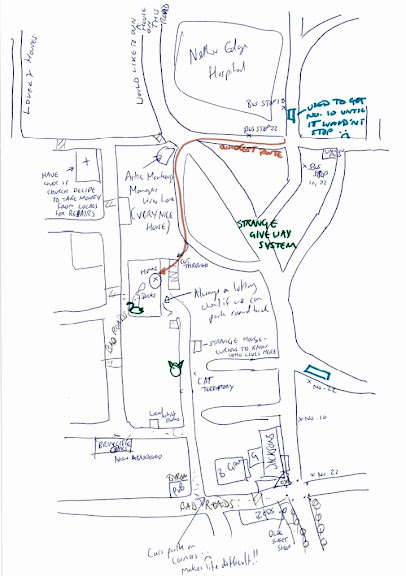 LOVELY HOUSES
WOULD LIKE TO OWN
A
HOUSE
ON
THIS
ROAD
Nether Edge
Hospital
BUS STOP 10
USED TO GET
NO. 10 UNTIL
IT WOULDN'T
STOP
BUS STOP 22
QUICKEST ROUTE
BUS
STOP
10, 22
HAVE
CHURCH DECIDE
TO TAKE MONEY
FROM LOCALS
FOR REPAIRS
Artic Monkeys
Manager
lives here
(VERY NICE
HOUSE)
STRANGE
GIVE WAY
SYSTEM
CUT
THROUGH
HOME
Always
if we can
park round back
BAD ROADS
STRANGE HOUSE -
CURIOUS TO KNOW
WHO LIVES HERE!
CAT
TERRITORY
No. 22
No. 10
No. 22
BRINCLIFFE
NOW ABANDONED
BYRON
PUB
JACKSONS
BAD ROADS
OLDE
SWEET
SHOP
Cars park on
corners...
makes life difficult!!